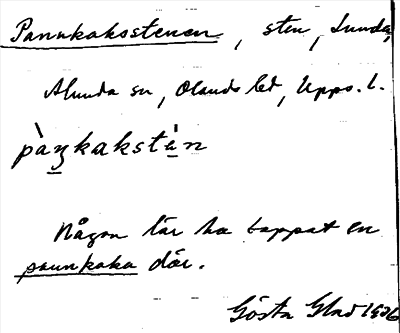 Pannkaksstenen, sten, Lunda,
Alunda sn, Olands hd, Upps. l.
pàŋkakstèn
Någon lär ha tappat en
pannkaka där.
Gösta Glad 1936